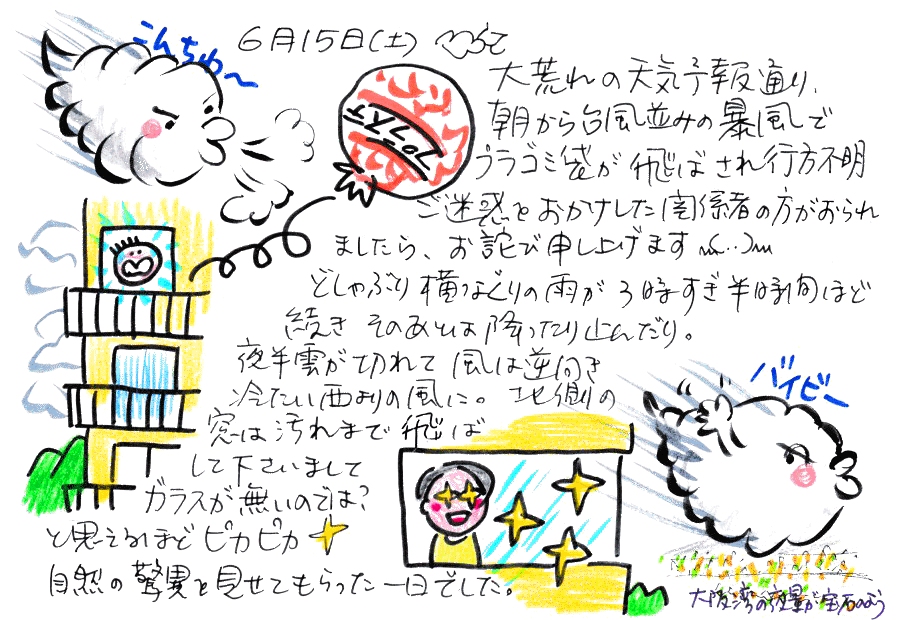 こんちゅわ〜
6月15日(土)
大荒れの天気予報通り、
朝から台風並みの暴風で
プラゴミ袋が飛ばされ行方不明
ご迷惑をおかけした関係者の方がおられ
ましたら、お詫び申し上げますm(..)m
どしゃぶり横なぐりの雨が3時すぎ半時間ほど
続きそのあとは降ったり止んだり。
夜半雲が切れて風は逆向き
冷たい西よりの風に。北側の
窓は汚れまで飛ば
して下さいまして
ガラスが無いのでは?
と思えるほどピカピカ
自然の驚異を見せてもらった一日でした。
バイビー
大阪湾の夜景が宝石のよう